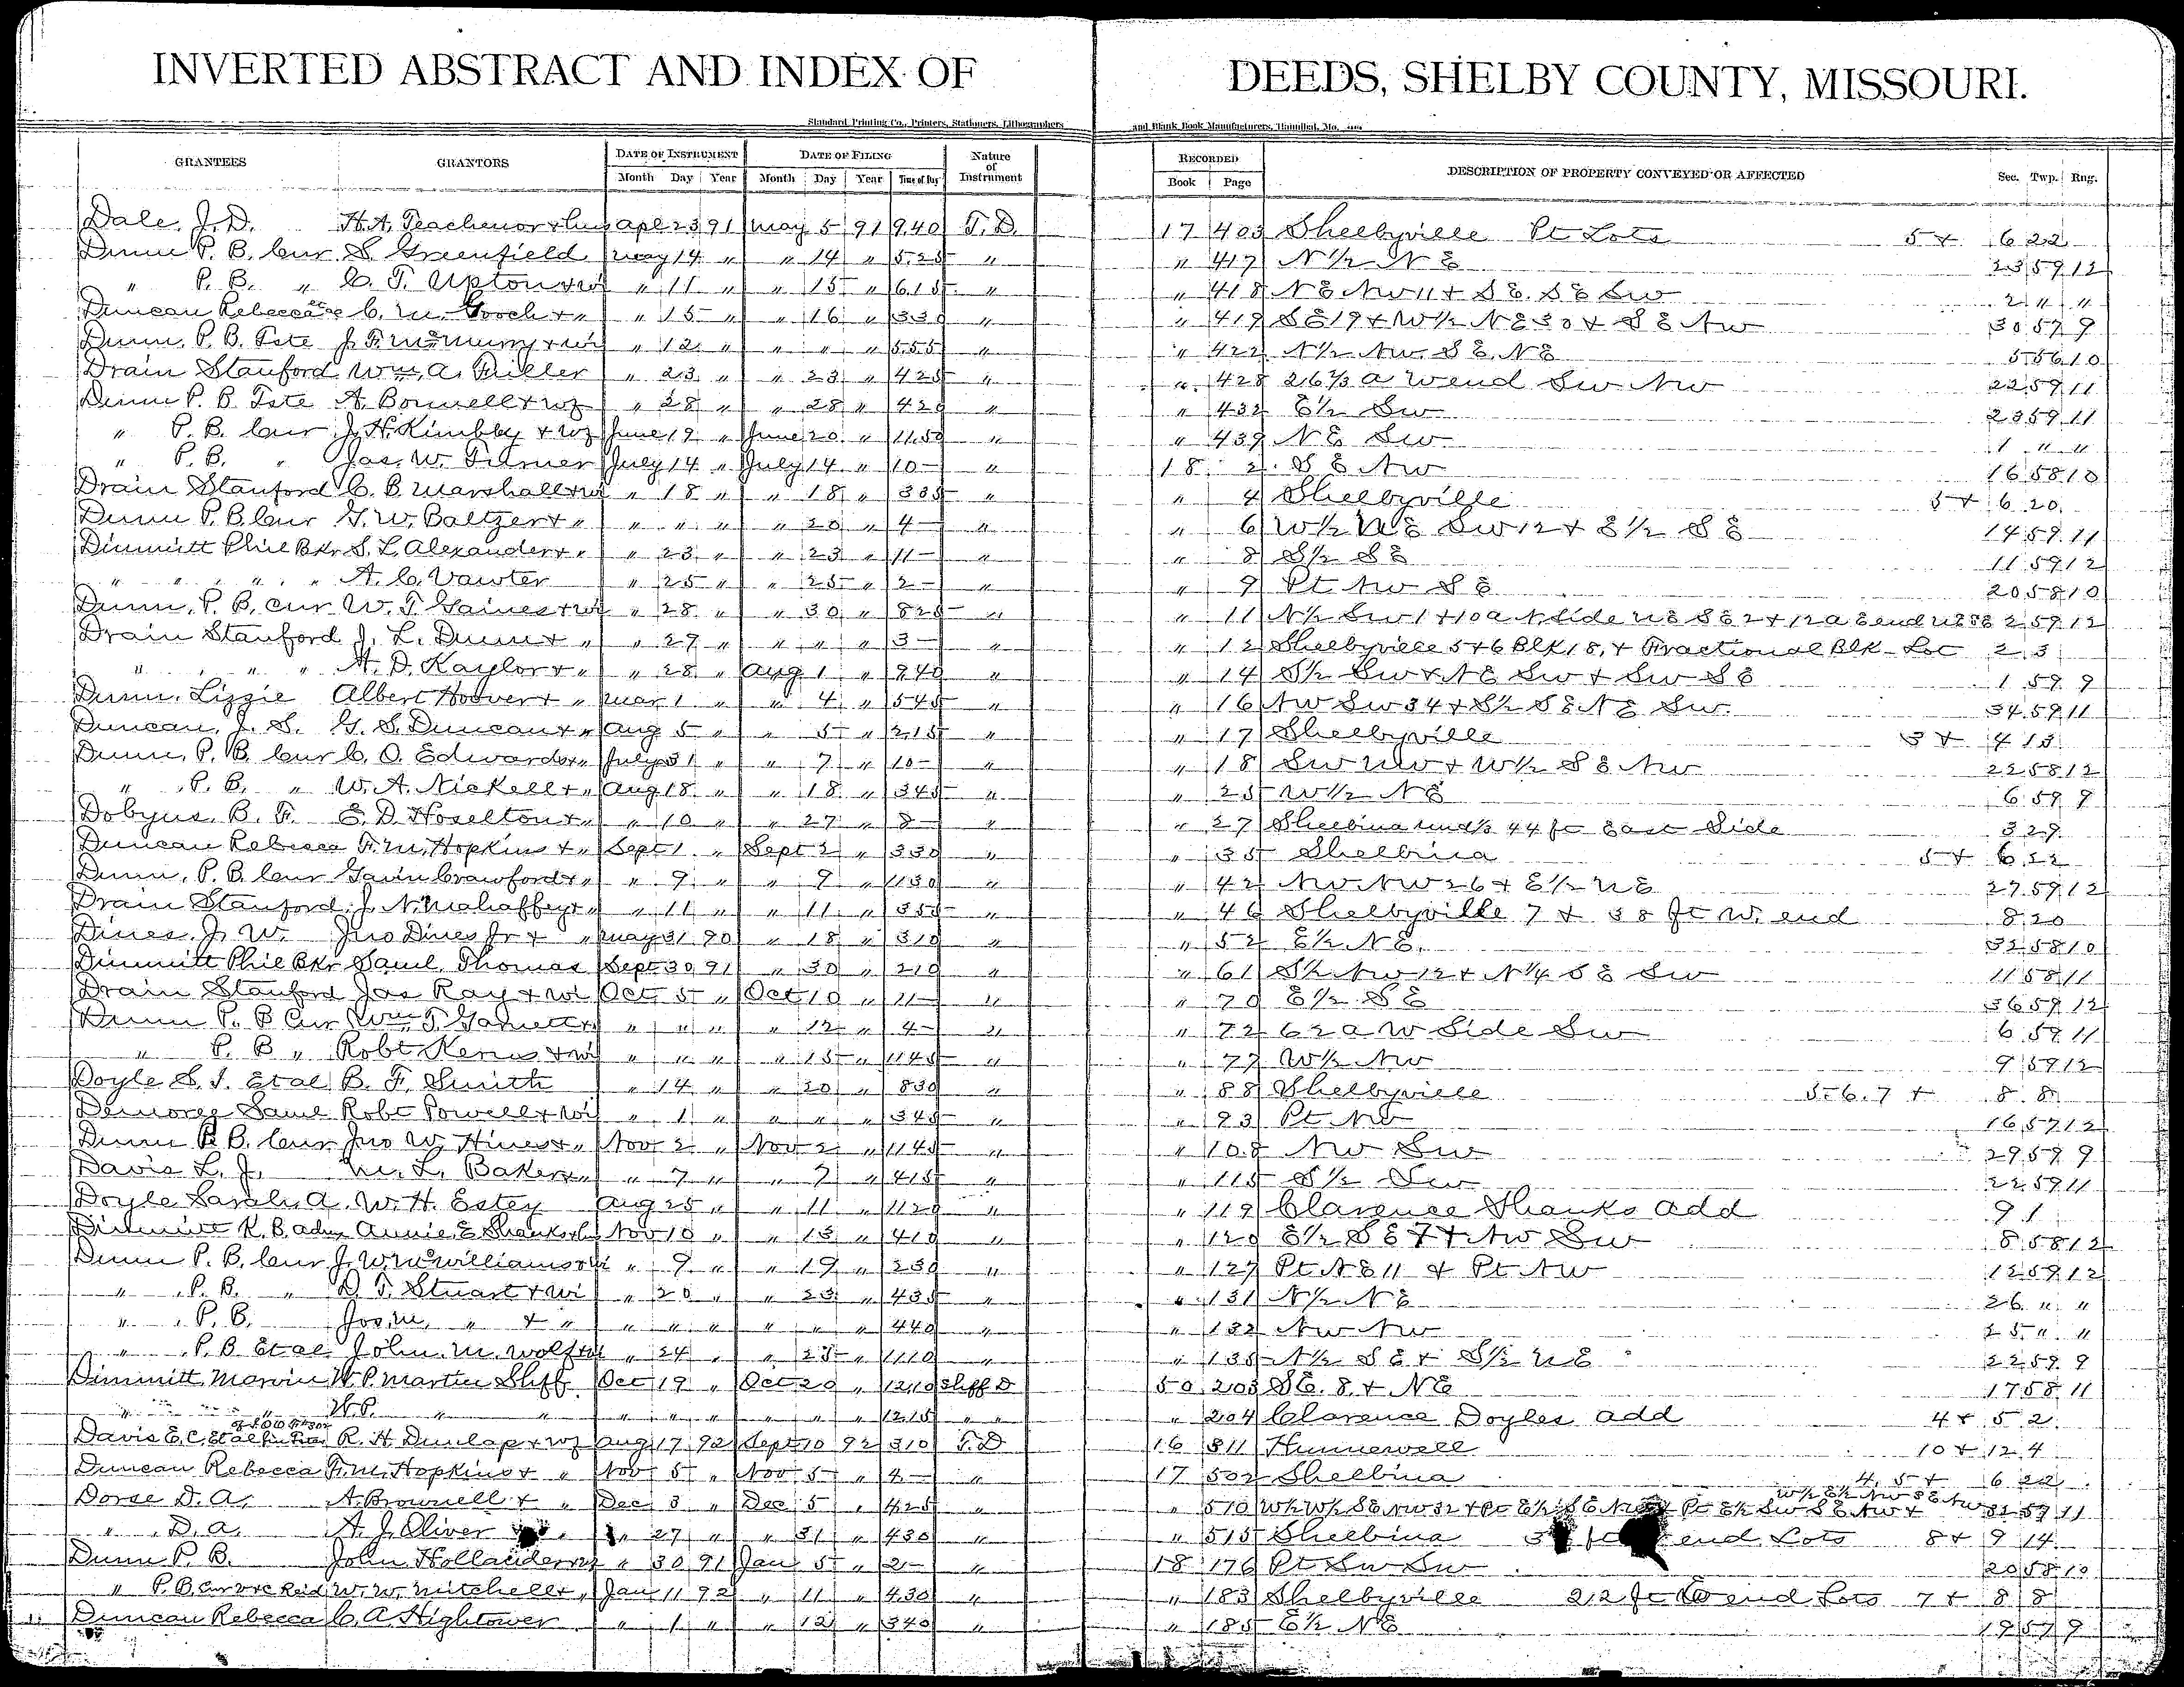 INVERTED ABSTRACT AND INDEX OF DEEDS, SHELBY COUNTY, MISSOURI.
Standard Printing Co., Printers, Stationers, Lithographers and Blank Book Manufacturers, Hannibal, Mo.
GRANTEES GRANTORS DATE OF INSTRUMENT DATE OF FILING Nature of Instrument RECORDED DESCRIPTION OF PROPERTY CONVEYED OR AFFECTED Sec. Twp. Rng.
Month Day Year Month Day Year Time of Day Book Page
Dale, J. D. H. A. Teachenor & hus Apl 23 91 May 5 91 9 40 T. D. 17 403 Shelbyville Pt Lots 5 & 6 22
Dunn P. B. Cur S. Greenfield May 14 " " 14 " 5 25 " " 417 N½ NE 23 59 12
" P. B. " C. T. Upton & wi " 11 " " 15 " 6 15 " " 418 NE NW 11 & SE SE SW 2 " "
Duncan Rebecca C. M. Gooch & " " 15 " " 16 " 3 30 " " 419 SE 19 & W½ NE 30 & SE NW 30 57 9
Dunn, P. B. Tste J. F. McMurry & wi " 12 " " " " 5 55 " " 422 N½ NW SE NE 5 56 10
Drain Stanford Wm. A. Miller " 23 " " 23 " 4 25 " " 428 26⅔ a W end SW NW 22 59 11
Dunn P. B. Tste A. Bonnell & wf " 28 " " 28 " 4 20 " " 432 E½ SW 23 59 11
" P. B. Cur J. H. Kimbly & wf June 19 " June 20 " 11 50 " " 439 NE SW 1 " "
" P. B. " Jas. W. Turner July 14 " July 14 " 10 - " 18 2 SE NW 16 58 10
Drain Stanford C. B. Marshall & wi " 18 " " 18 " 3 35 " " 4 Shelbyville 5 & 6 20
Dunn P. B. Cur G. W. Baltzer & " " " " " 20 " 4 - " " 6 W½ NE SW 12 & E½ SE 14 59 11
Dimmitt Phil Bkr S. L. Alexander & " " 23 " " 23 " 11 - " " 8 S½ SE 11 59 12
" " " A. C. Vawter " 25 " " 25 " 2 - " " 9 Pt NW SE 20 58 10
Dunn, P. B. Cur W. T. Gaines & wi " 28 " " 30 " 8 25 " " 11 N½ SW 1 & 10 a N side NE SE 2 & 12 a E end NE SE 2 59 12
Drain Stanford J. L. Dunn & " " 27 " " " " 3 - " " 12 Shelbyville 5 & 6 Blk 18, & Fractional Blk Lot 2 3
" " H. D. Kaylor & " " 28 " Aug 1 " 9 40 " " 14 S½ SW & NE SW & SW SE 1 59 9
Dunn, Lizzie Albert Hoover & " Mar 1 " " 4 " 5 45 " " 16 NW SW 34 & S½ SE NE SW 34 59 11
Duncan, J. S. G. S. Duncan & " Aug 5 " " 5 " 2 15 " " 17 Shelbyville 3 & 4 13
Dunn, P. B. Cur C. O. Edwards & " July 31 " " 7 " 10 - " " 18 SW NW & W½ SE NW 22 58 12
" P. B. " W. A. Nickell & " Aug 18 " " 18 " 3 45 " " 25 W½ NE 6 59 9
Dobyns, B. F. E. D. Hoselton & " " 10 " " 27 " 8 - " " 27 Shelbina 44 ft East Side 3 29
Duncan Rebecca F. M. Hopkins & " Sept 1 " Sept 2 " 3 30 " " 35 Shelbina 5 & 6 22
Dunn, P. B. Cur Gavin Crawford & " " 9 " " 9 " 11 30 " " 42 NW NW 26 & E½ NE 27 59 12
Drain Stanford J. N. Mahaffey & " " 11 " " 11 " 3 50 " " 46 Shelbyville 7 & 38 ft W. end 8 20
Dines, J. W. Jno Dines Jr & " May 31 90 " 18 " 3 10 " " 52 E½ NE 32 58 10
Dimmitt Phil Bkr Saml. Thomas Sept 30 91 " 30 " 2 10 " " 61 S½ NW 12 & N¼ SE SW 11 58 11
Drain Stanford Jas Ray & wi Oct 5 " Oct 10 " 11 - " " 70 E½ SE 36 59 12
Dunn P. B. Cur Wm. T. " " " " 12 " 4 - " " 72 62 a W Side SW 6 59 11
" P. B. " Robt Kerns & wi " " " " 15 " 11 45 " " 77 W½ NW 9 59 12
Doyle S. J. Et al B. F. Smith " 14 " " 20 " 8 30 " " 88 Shelbyville 5 6 7 & 8 8
Saml Robt Powell & wi " 1 " " " " 3 45 " " 93 Pt NW 16 57 12
Dunn P. B. Cur Jno W. Hines & " Nov 2 " Nov 2 " 11 45 " " 108 NW SW 29 59 9
Davis L. J. M. L. Baker & " " 7 " " 7 " 4 15 " " 115 S½ SW 22 59 11
Doyle Sarah, A. W. H. Estey Aug 25 " " 11 " 11 20 " " 119 Clarence Shanks add 9 1
Dimmitt K. B. adm Annie E Shanks Nov 10 " " 13 " 4 10 " " 120 E½ SE 7 & NW SW 8 58 12
Dunn P. B. Cur J. W. McWilliams & wi " 9 " " 19 " 2 30 " " 127 Pt NE 11 & Pt NW 12 59 12
" P. B. " D. T. Stuart & wi " 20 " " 23 " 4 35 " " 131 N½ NE 26 " "
" P. B. Jos. M. " & " " " " " " " 4 40 " " 132 NW NW 25 " "
" P. B. Et al John. M. Wolf & " 24 " " 25 " 11 10 " " 135 N½ SE & S½ NE 22 59 9
Dimmitt, Marvin W. P. Martin Shff Oct 19 " Oct 20 " 12 10 Shff D 50 203 SE. 8 & NE 17 58 11
" " W. P. " " " " " " " " 12 15 " " " 204 Clarence Doyles add 4 & 5 2
Davis E. C. Et al R. H. Dunlap & wf Aug 17 92 Sept 10 92 3 10 T. D. 16 811 Hunnewell 10 & 12 4
Duncan Rebecca F. M. Hopkins & " Nov 5 " Nov 5 " 4 - " 17 502 Shelbina 4, 5 & 6 22
Dorse D. A. A. Brownell & " Dec 3 " Dec 5 " 4 25 " " 510 W½ W½ SE NW 32 & Pt E½ SE & Pt E½ SW SE NW & W½ E½ NW SE NW 32 59 11
" D. A. A. J. Oliver " 27 " " 31 " 4 30 " " 515 Shelbina end Lots 8 & 9 14
Dunn P. B. John Hollander " 30 91 Jan 5 " 2 - " 18 176 Pt SW SW 20 58 10
" P. B. Cur W. W. Mitchell & " Jan 11 92 " 11 " 4 30 " " 183 Shelbyville 212 ft end Lots 7 & 8 8
Duncan Rebecca C. A. Hightower " 1 " " 12 " 3 40 " " 185 E½ NE 19 57 9